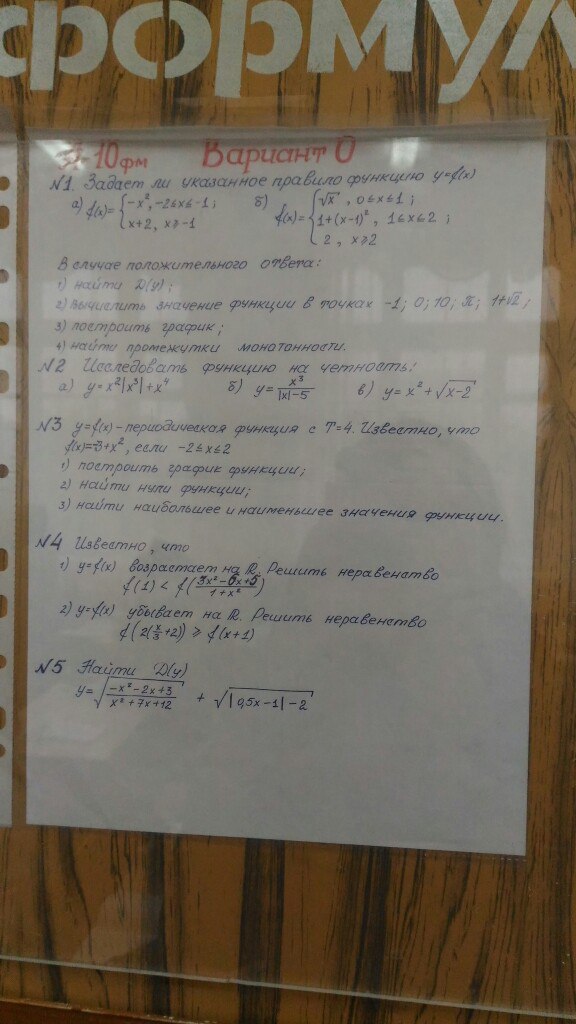 формул
10 фм Вариант 0
№1. Задает ли указанное правило функцию y=f(x)
а) f(x)={ -x², -2≤x≤-1; x+2, x≥-1 б) f(x)={ √x, 0≤x≤1; 1+(x-1)², 1≤x≤2; 2, x≥2
В случае положительного ответа:
1) найти D(y);
2) вычислить значение функции в точках -1; 0; 10; π; 1+√2;
3) построить график;
4) найти промежутки монотонности.
№2 Исследовать функцию на четность:
а) y=x²|x³|+x⁴ б) y=x³/(|x|-5) в) y=x²+√(x-2)
№3 y=f(x)-периодическая функция с T=4. Известно, что
f(x)=-3+x², если -2≤x≤2
1) построить график функции;
2) найти нули функции;
3) найти наибольшее и наименьшее значения функции.
№4 Известно, что
1) y=f(x) возрастает на R. Решить неравенство
f(1) < f((3x²-6x+5)/(1+x²))
2) y=f(x) убывает на R. Решить неравенство
f(2(x/3+2)) ≥ f(x+1)
№5 Найти D(y)
y=√((-x²-2x+3)/(x²+7x+12)) + √(|0,5x-1|-2)